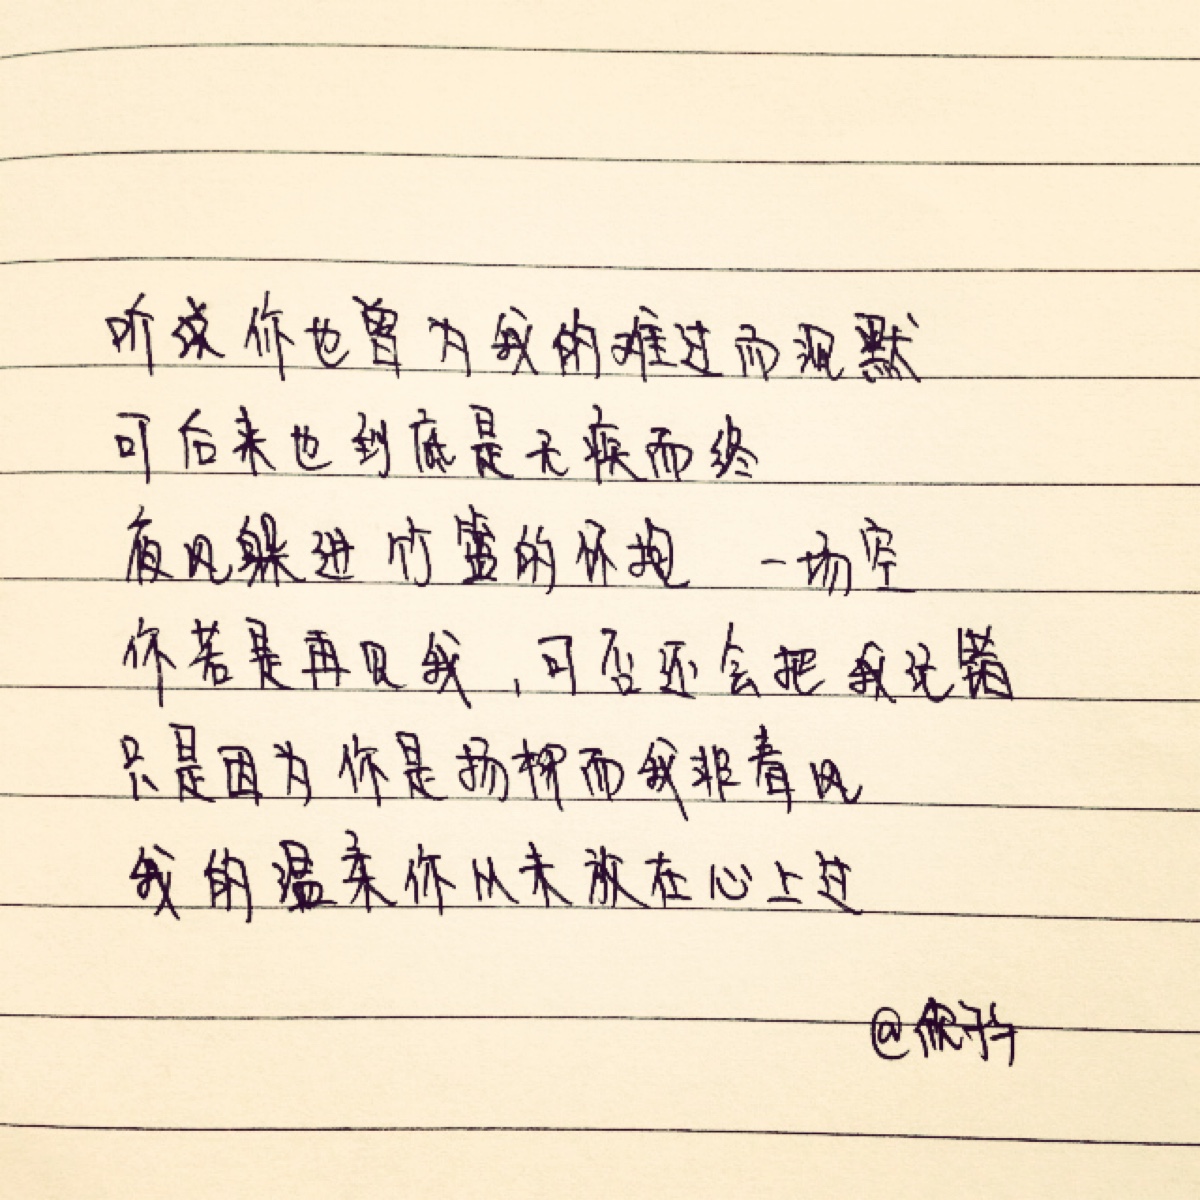 听说你也曾为我的难过而沉默
可后来也到底是无疾而终
夜风躲进竹蜜的怀抱 一场空
你若是再见我，可否还会把我记错
只是因为你是扬柳而我非春风
我的温柔你从未放在心上过
@